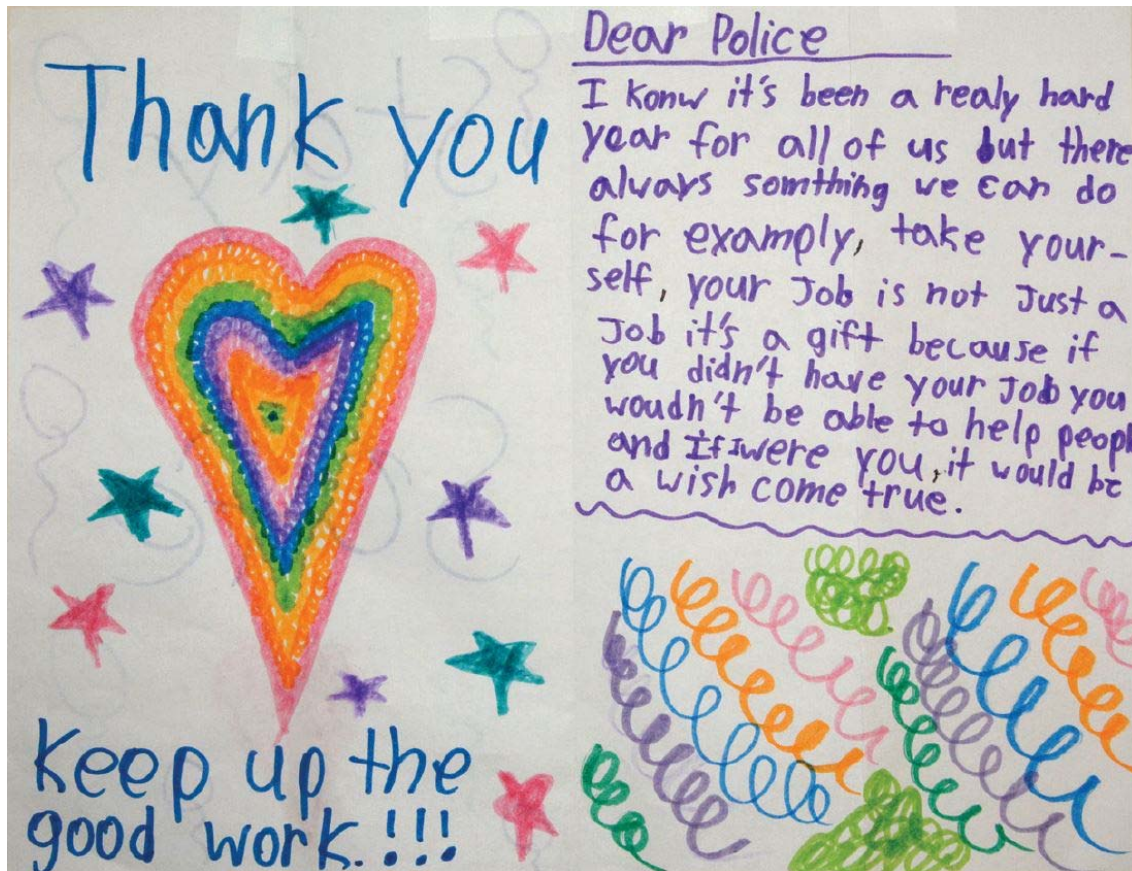 Thank you
Keep up the
good work.!!!
Dear Police
I konw it's been a realy hard
year for all of us but there
always somthing we can do
for examply, take your-
self, your Job is not Just a
Job it's a gift because if
you didn't have your Job you
woudn't be able to help peopl
and If I were you, it would be
a wish come true.